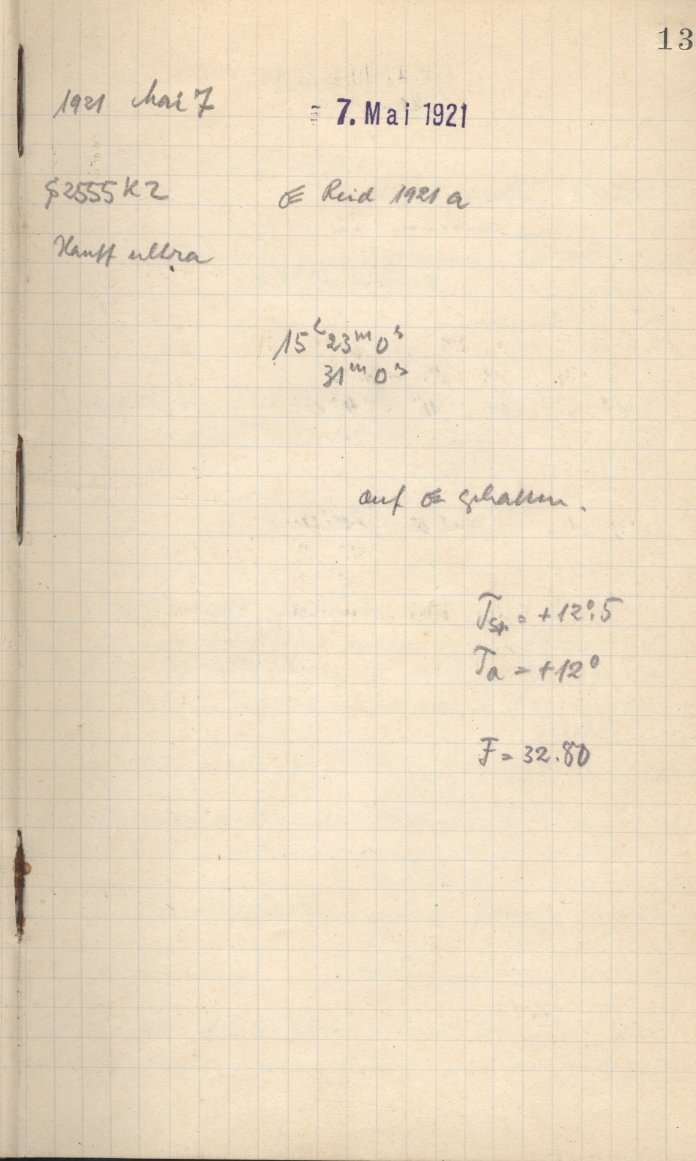 13
1921 Mai 7 7. Mai 1921
2555 K2 ☄ Reid 1921 a
Hauff ultra
15ʰ23ᵐ0ˢ
31ᵐ0ˢ
auf ☄ gehalten.
T = +12°.5
Ta = +12°
F = 32.80